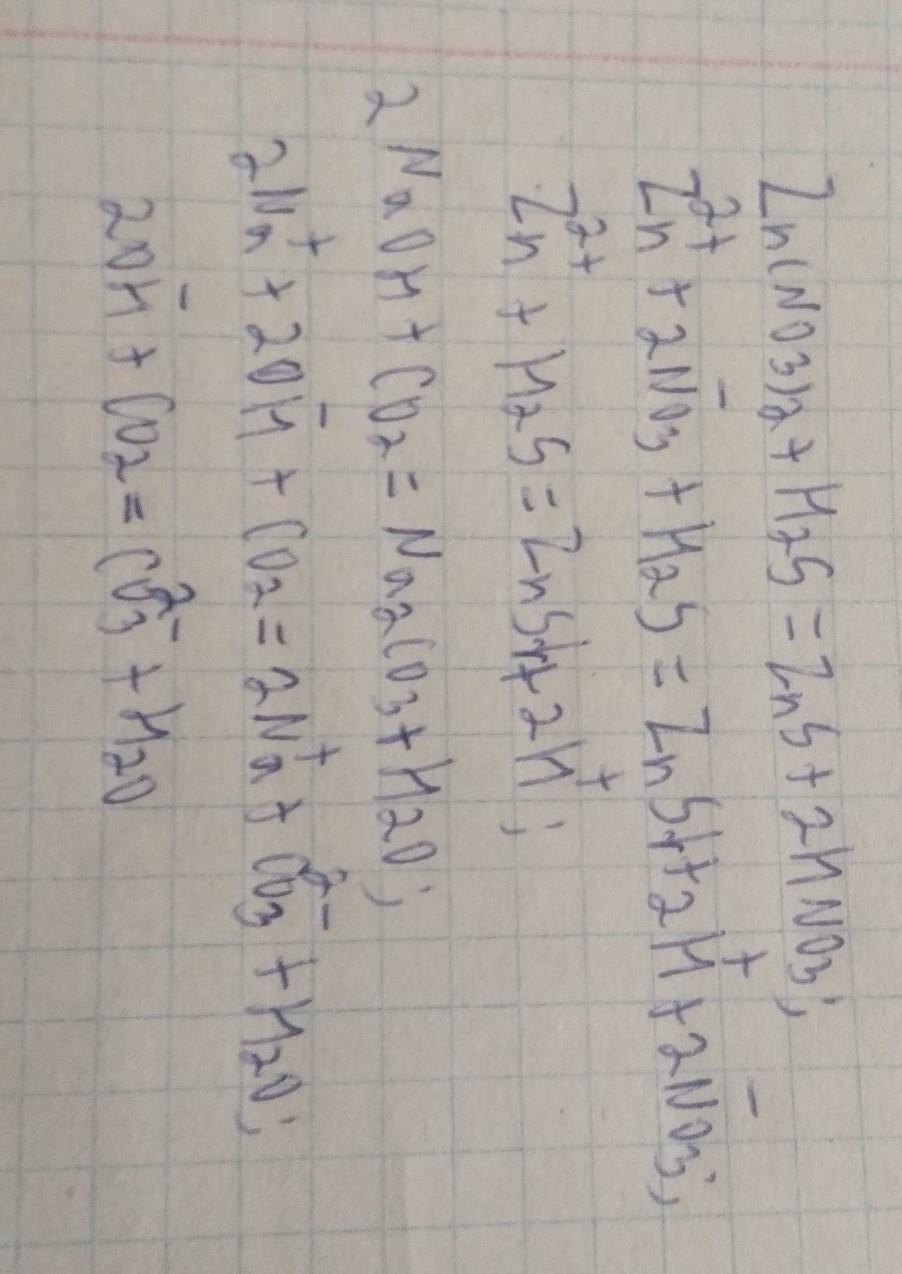 Zn(NO3)2 + H2S = ZnS + 2HNO3;
Zn²⁺ + 2NO3⁻ + H2S = ZnS↓ + 2H⁺ + 2NO3⁻;
Zn²⁺ + H2S = ZnS↓ + 2H⁺;
2NaOH + CO2 = Na2CO3 + H2O;
2Na⁺ + 2OH⁻ + CO2 = 2Na⁺ + CO3²⁻ + H2O;
2OH⁻ + CO2 = CO3²⁻ + H2O